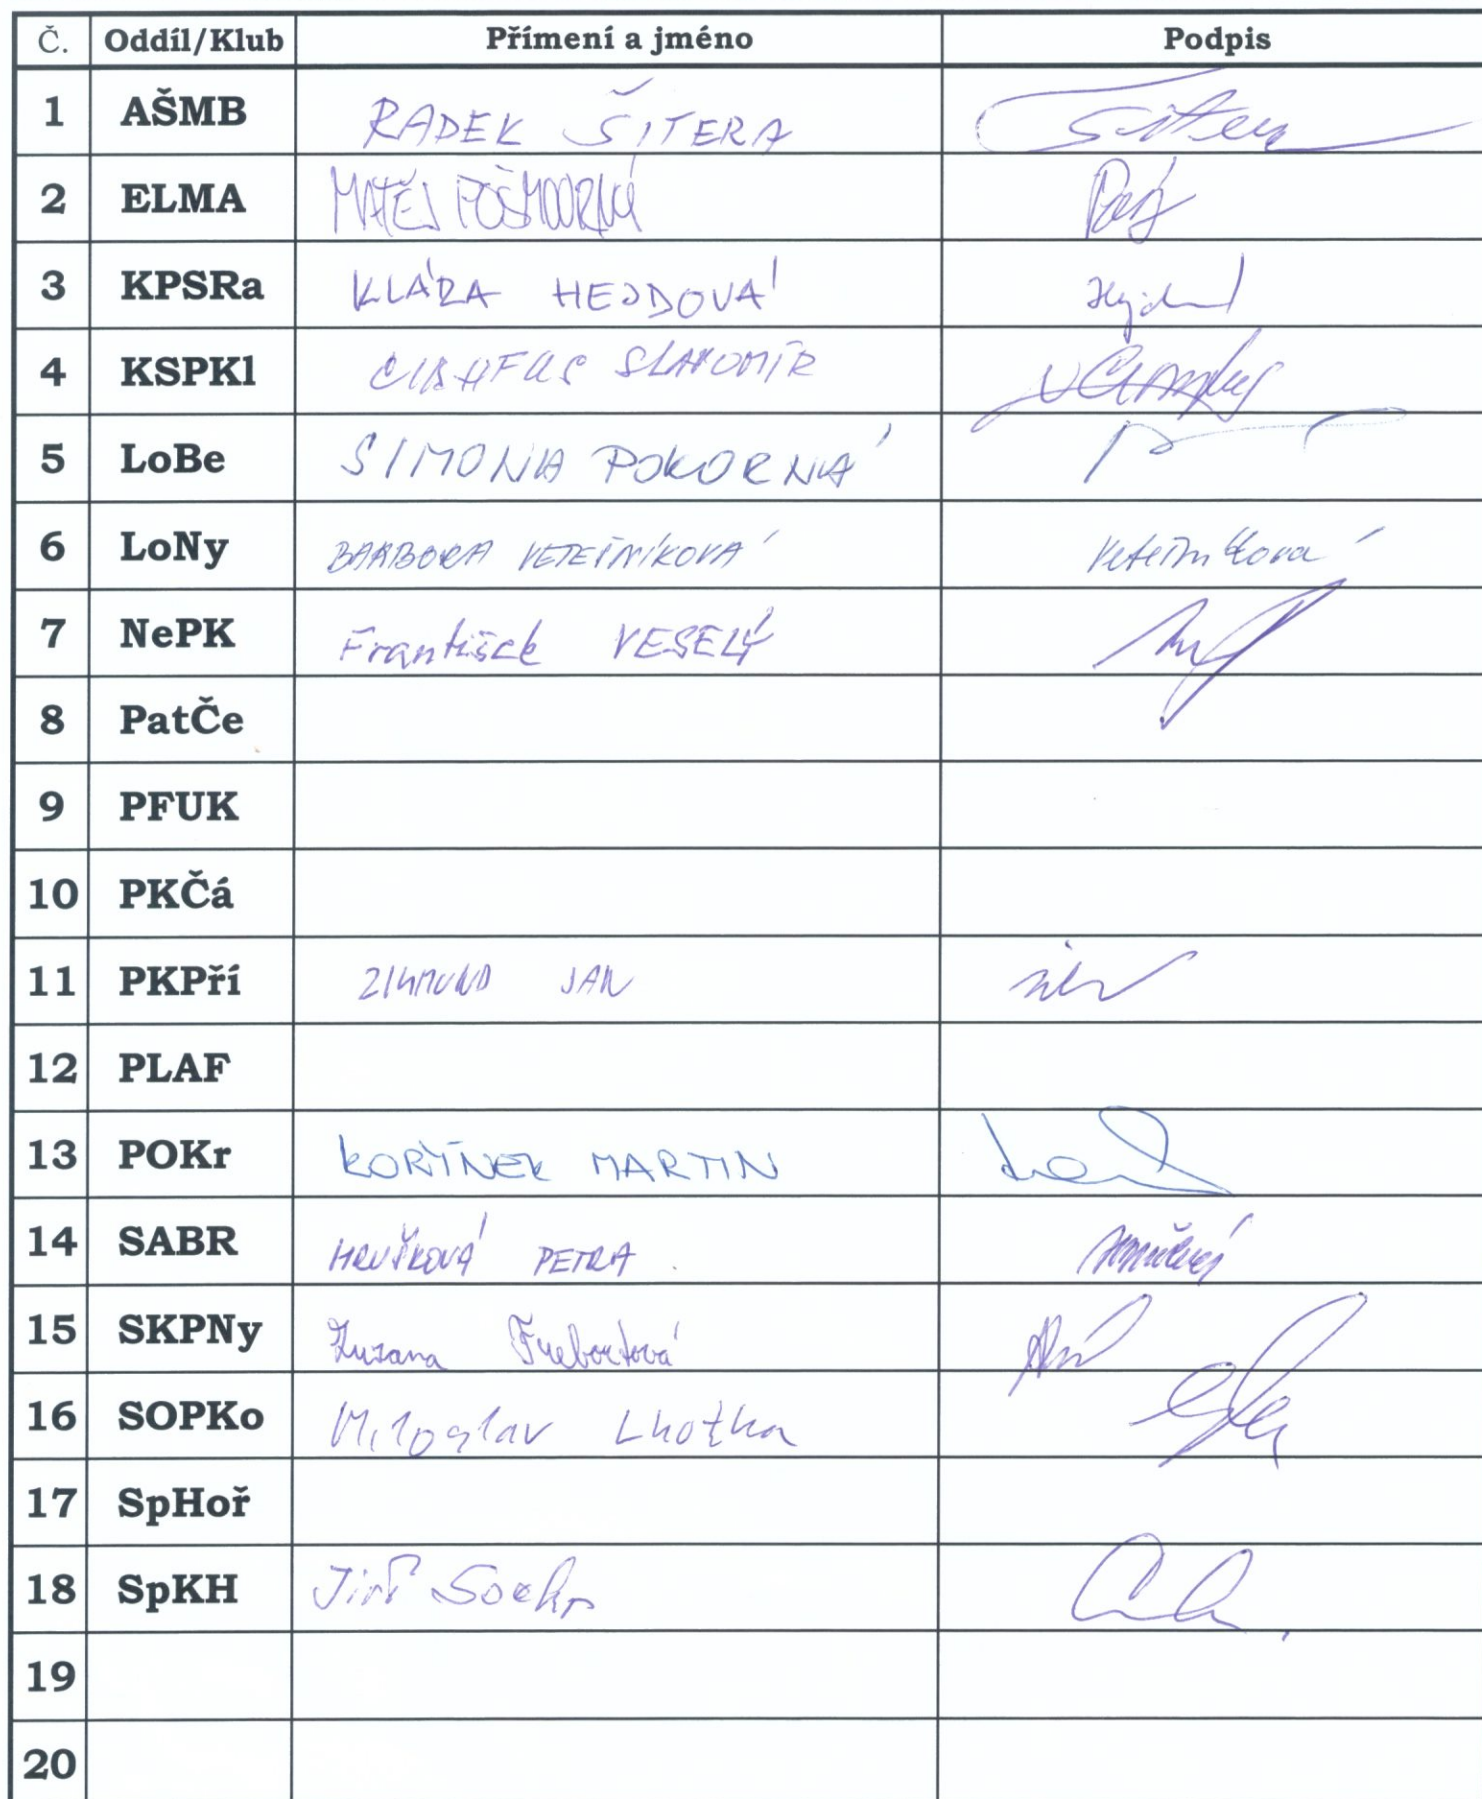 Č. Oddíl/Klub Přímení a jméno Podpis
1 AŠMB RADEK ŠITERA
2 ELMA MATĚJ
3 KPSRa KLÁRA HEJDOVÁ
4 KSPKl SLAVOMÍR
5 LoBe SIMONA POKORNÁ
6 LoNy BARBORA VETEŠNÍKOVÁ Vetešníková
7 NePK František VESELÝ
8 PatČe
9 PFUK
10 PKČá
11 PKPří ZIKMUND JAN
12 PLAF
13 POKr KOŘÍNEK MARTIN
14 SABR HRUŠKOVÁ PETRA
15 SKPNy Zuzana
16 SOPKo Miloslav Lhotka
17 SpHoř
18 SpKH Jiří
19
20